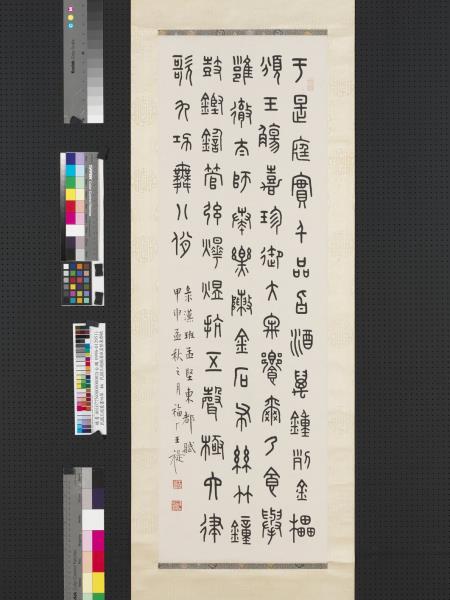 于是庭實千品旨酒萬鍾列金罍
頒玉觴嘉珍御大牢饗爾乃食舉
雝徹太師奏樂陳金石布絲竹鐘
鼓鏗鍧管弦燁煜抗五聲極六律
歌九功舞八佾
彔漢班孟堅東都賦
甲申孟秋之月福厂王禔